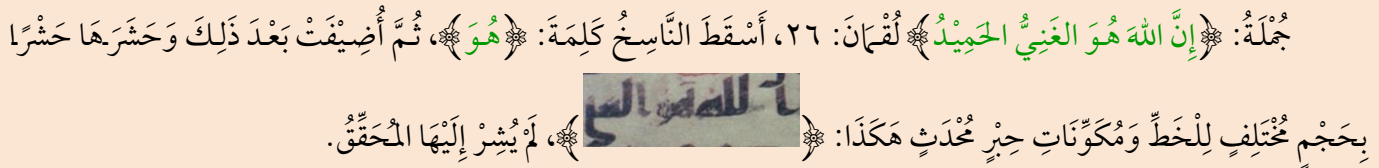 جُمْلَةُ: ﴿إِنَّ اللهَ هُوَ الغَنِيُّ الحَمِيْدُ﴾ لُقْمَانَ: ٢٦، أَسْقَطَ النَّاسِخُ كَلِمَةَ: ﴿هُوَ﴾، ثُمَّ أُضِيْفَتْ بَعْدَ ذَلِكَ وَحَشَرَهَا حَشْرًا
بِحَجْمٍ مُخْتَلِفٍ لِلْخَطِّ وَمُكَوِّنَاتِ حِبْرٍ مُحْدَثٍ هَكَذَا: ﴿ا لله هو الغني﴾، لَمْ يُشِرْ إِلَيْهَا المُحَقِّقُ.